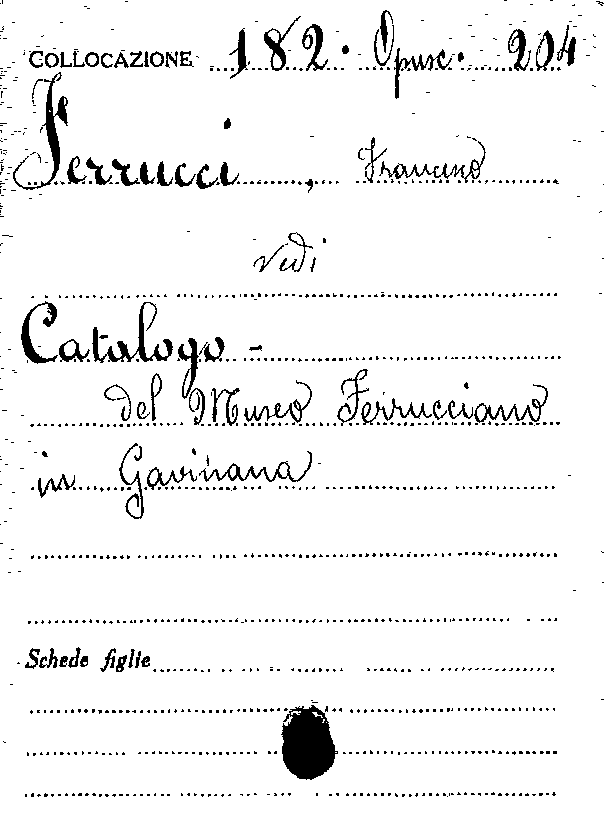 COLLOCAZIONE 182. Opusc. 204
Ferrucci, Francesco
vedi
Catalogo -
del Museo Ferrucciano
in Gavinana
Schede figlie